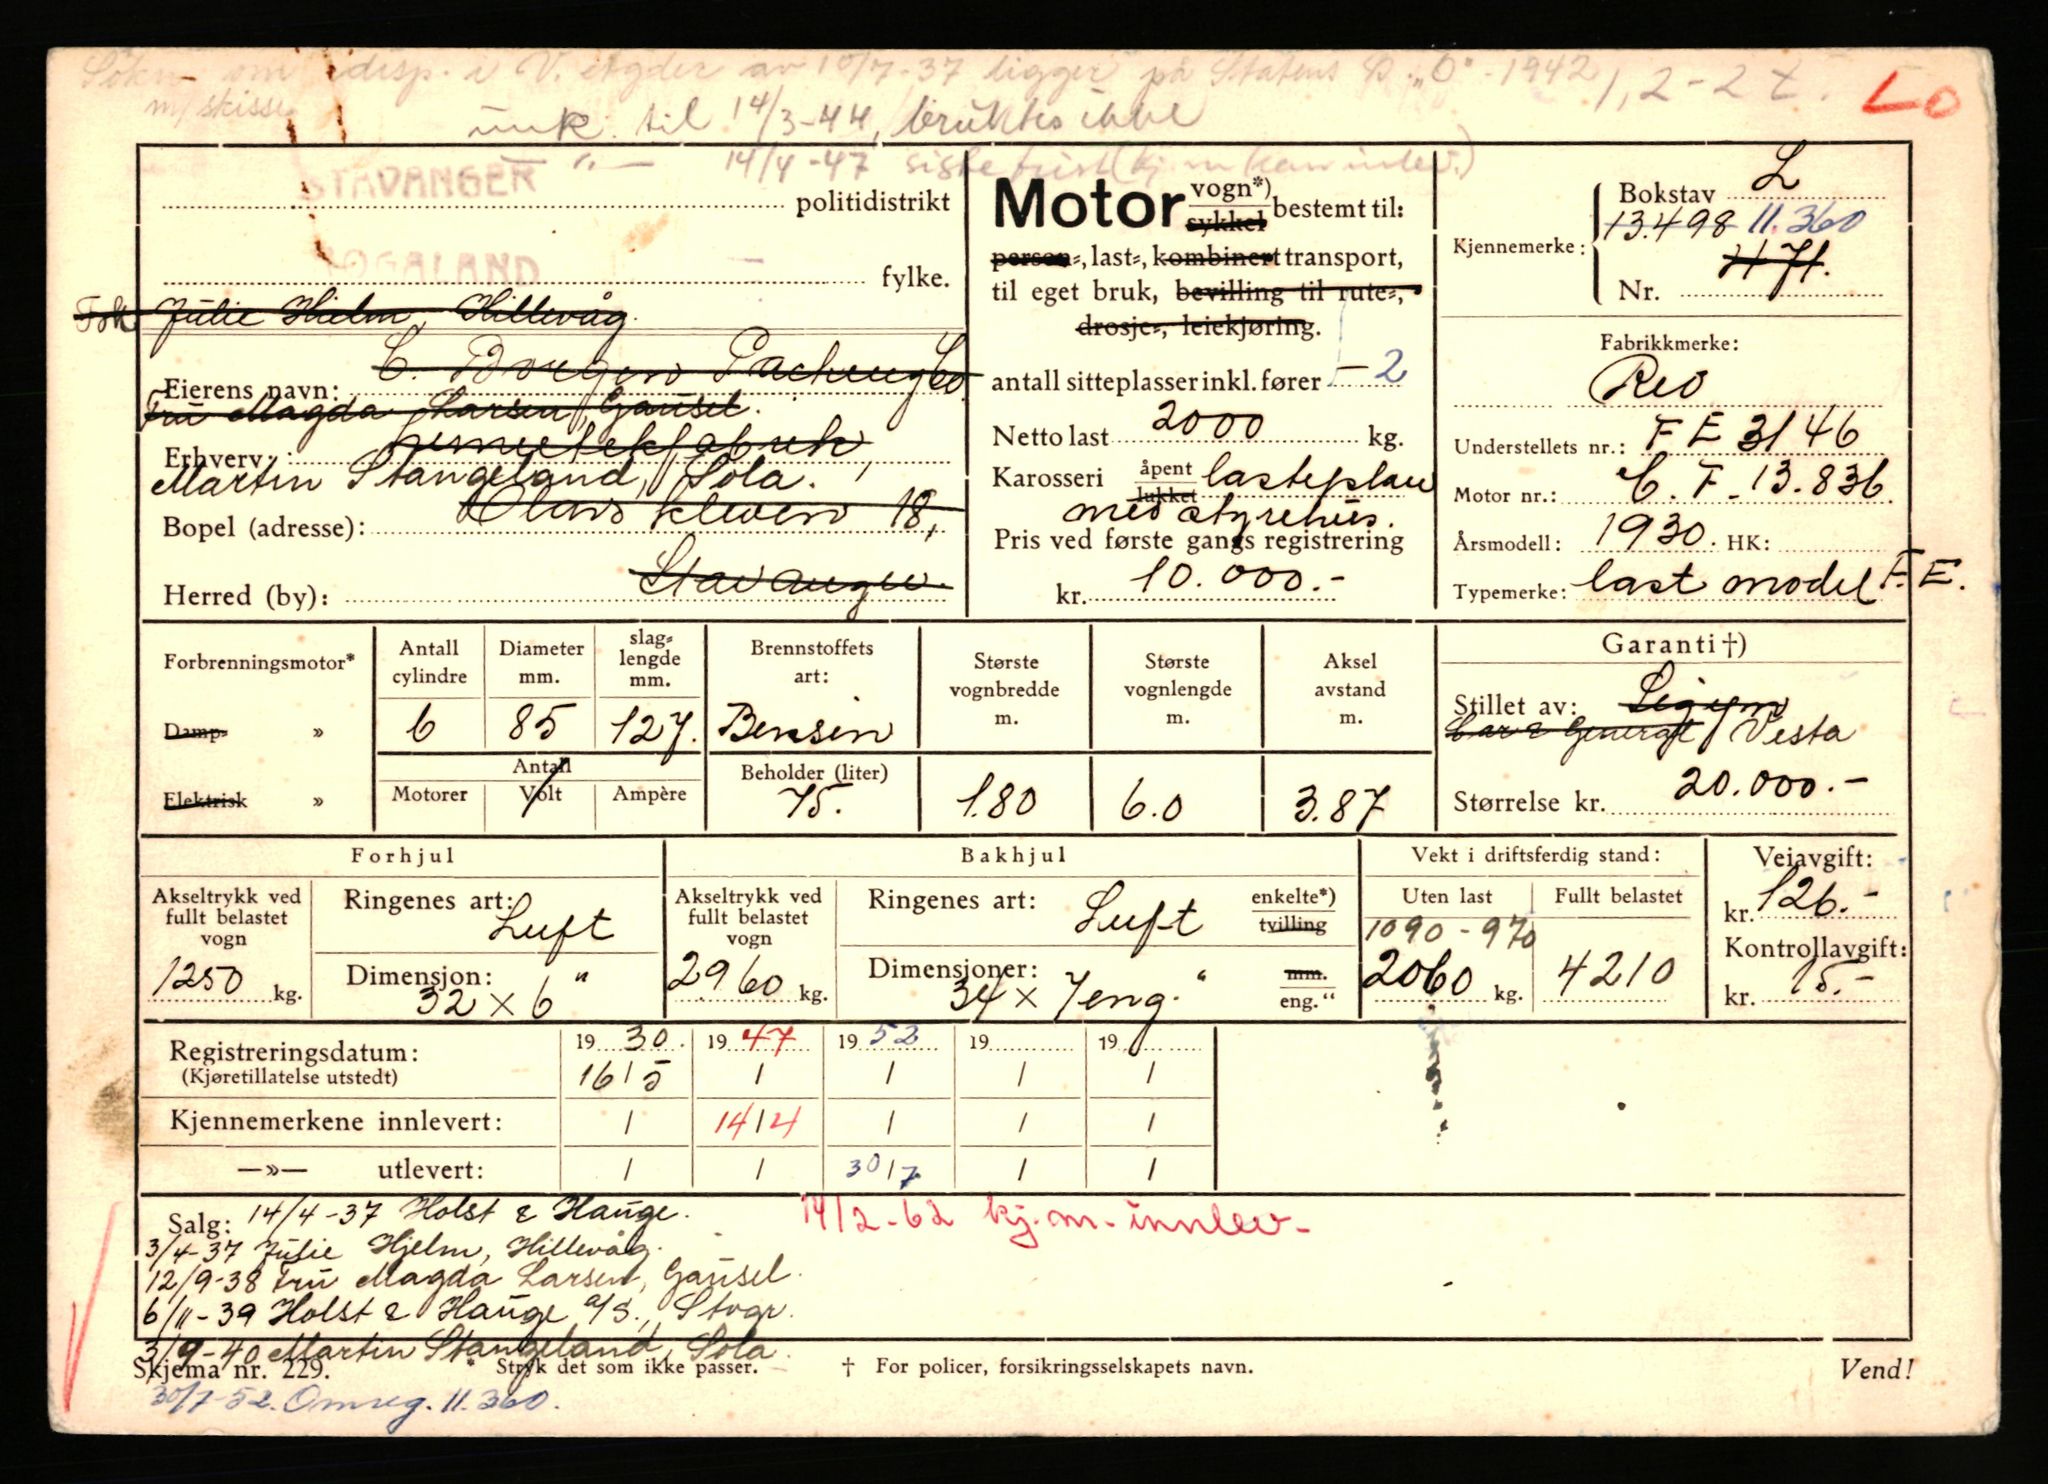 om disp. i V. Agder av 10/7-37 ligger på Statens D. "O" - 1942
1, 2 - 2 t.
LO
m/ skisse
unk. til 14/3-44, bruktes ikke
— " — 14/4-47 siste frist (kj.m kan innlev.)
STAVANGER
politidistrikt
ROGALAND
fylke.
Frk. Julie Hjelm, Hillevåg.
Eierens navn: C. Borgen Packing Co
Fru Magda Larsen, Gausel.
Erhverv: hermetikkfabrik,
Martin Stangeland, Sola.
Bopel (adresse): Olavs kleven 18,
Herred (by): Stavanger.
Motor vogn*) sykkel bestemt til:
person-, last-, kombinert transport,
til eget bruk, bevilling til rute-,
drosje-, leiekjøring.
antall sitteplasser inkl. fører — 2
Netto last 2000 kg.
Karosseri åpent lukket lasteplan
med styrehus.
Pris ved første gangs registrering
kr. 10.000.-
Kjennemerke:
Bokstav L
13.498 11.360
Nr. 1171.
Fabrikkmerke:
Reo
Understellets nr.: FE 3146
Motor nr.: C. F. 13.836
Årsmodell: 1930. HK:
Typemerke: last model F.E.
Forbrenningsmotor*
Damp- »
Elektrisk »
Antall cylindre
6
Diameter mm.
85
slag-lengde mm.
127.
Antall
Motorer Volt Ampère
Brennstoffets art:
Bensin
Beholder (liter)
75.
Største vognbredde m.
1.80
Største vognlengde m.
6.0
Aksel avstand m.
3.87
Garanti †)
Stillet av:
Car & General, Vesta
Størrelse kr. 20.000.-
Forhjul
Akseltrykk ved fullt belastet vogn
1250 kg.
Ringenes art: Luft
Dimensjon: 32 x 6 "
Bakhjul
Akseltrykk ved fullt belastet vogn
2960 kg.
Ringenes art: Luft enkelte*) tvilling
Dimensjoner: 34 x 7 eng. " mm. eng."
Vekt i driftsferdig stand:
Uten last Fullt belastet
1090 - 970
2060 kg. 4210
Veiavgift:
kr. 126.-
Kontrollavgift:
kr. 15.-
Registreringsdatum: 19 30. 19 47 19 52 19 19
(Kjøretillatelse utstedt) 16/5 / / / /
Kjennemerkene innlevert: / 14/4 / / /
—»— utlevert: / / 30/7 / /
Salg: 14/4-37 Holst & Hauge.
14/2-62 kj.m. innlev.
3/4-37 Julie Hjelm, Hillevåg.
12/9-38 Fru Magda Larsen, Gausel.
6/11-39 Holst & Hauge A/S., Stvgr.
3/9-40 Martin Stangeland, Sola.
Skjema nr. 229. * Stryk det som ikke passer. † For policer, forsikringsselskapets navn. Vend!
30/7-52. Omreg. 11.360.